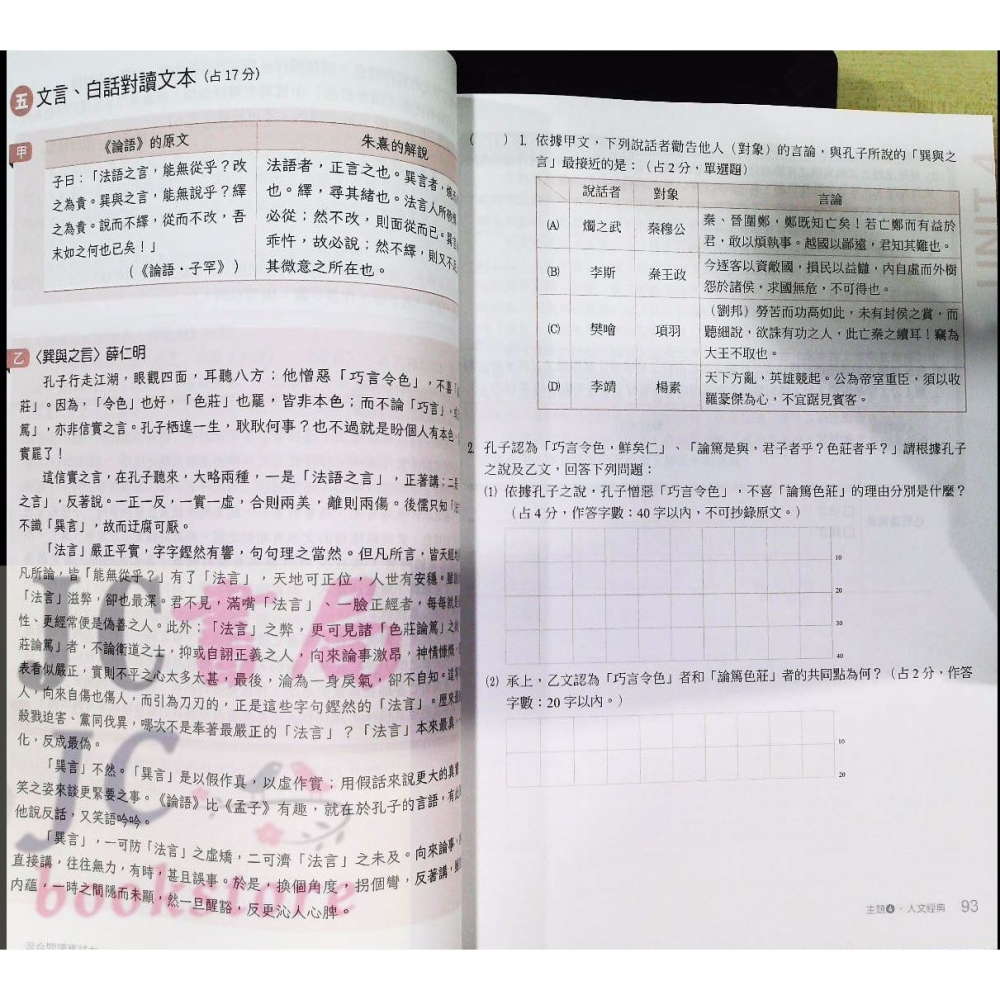 五 文言、白話對讀文本(占17分)
甲
《論語》的原文
朱熹的解說
子曰:「法語之言,能無從乎?改
之為貴。巽與之言,能無說乎?繹
之為貴。說而不繹,從而不改,吾
末如之何也已矣!」
(《論語.子罕》)
法語者,正言之也。巽言者,
也。繹,尋其緒也。法言人所
必從;然不改,則面從而已。
乖忤,故必說;然不繹,則又不
其微意之所在也。
乙 〈巽與之言〉薛仁明
孔子行走江湖,眼觀四面,耳聽八方;他憎惡「巧言令色」,不喜
莊」。因為,「令色」也好,「色莊」也罷,皆非本色;而不論「巧言」,
篤」,亦非信實之言。孔子栖遑一生,耿耿何事?也不過就是盼個人有本色
實罷了!
這信實之言,在孔子聽來,大略兩種,一是「法語之言」,正著講;二是
之言」,反著說。一正一反,一實一虛,合則兩美,離則兩傷。後儒只知
不識「巽言」,故而迂腐可厭。
「法言」嚴正平實,字字鏗然有響,句句理之當然。但凡所言,皆天經
凡所論,皆「能無從乎?」有了「法言」,天地可正位,人世有安穩。
「法言」滋弊,卻也最深。君不見,滿嘴「法言」、一臉正經者,每每就是
性、更經常便是偽善之人。此外;「法言」之弊,更可見諸「色莊論篤」之
莊論篤」者,不論衛道之士,抑或自詡正義之人,向來論事激昂,神情慷慨
表看似嚴正,實則不平之心太多太甚,最後,淪為一身戾氣,卻不自知。
人,向來自傷也傷人,而引為刀刃的,正是這些字句鏗然的「法言」。歷來
殺戮迫害、黨同伐異,哪次不是奉著最嚴正的「法言」?「法言」本來最真
化,反成最偽。
「巽言」不然。「巽言」是以假作真,以虛作實;用假話來說更大的真實
笑之姿來談更緊要之事。《論語》比《孟子》有趣,就在於孔子的言語,有
他說反話,又笑語吟吟。
「巽言」,一可防「法言」之虛矯,二可濟「法言」之未及。向來論事,
直接講,往往無力,有時,甚且誤事。於是,換個角度,拐個彎,反著講,
內蘊,一時之間隱而未顯,然一旦醒豁,反更沁人心脾。
JC書局
JC
bookstore
( ) 1. 依據甲文,下列說話者勸告他人(對象)的言論,與孔子所說的「巽與之
言」最接近的是:(占2分,單選題)
說話者 對象 言論
(A) 燭之武 秦穆公 秦、晉圍鄭,鄭既知亡矣!若亡鄭而有益於
君,敢以煩執事。越國以鄙遠,君知其難也。
(B) 李斯 秦王政 今逐客以資敵國,損民以益讎,內自虛而外樹
怨於諸侯,求國無危,不可得也。
(C) 樊噲 項羽 (劉邦)勞苦而功高如此,未有封侯之賞,而
聽細說,欲誅有功之人,此亡秦之續耳!竊為
大王不取也。
(D) 李靖 楊素 天下方亂,英雄競起。公為帝室重臣,須以收
羅豪傑為心,不宜踞見賓客。
2. 孔子認為「巧言令色,鮮矣仁」、「論篤是與,君子者乎?色莊者乎?」請根據孔子
之說及乙文,回答下列問題:
(1) 依據孔子之說,孔子憎惡「巧言令色」,不喜「論篤色莊」的理由分別是什麼?
(占4分,作答字數:40字以內,不可抄錄原文。)
10
20
30
40
(2) 承上,乙文認為「巧言令色」者和「論篤色莊」者的共同點為何?(占2分,作答
字數:20字以內。)
10
20
主題4.人文經典 93